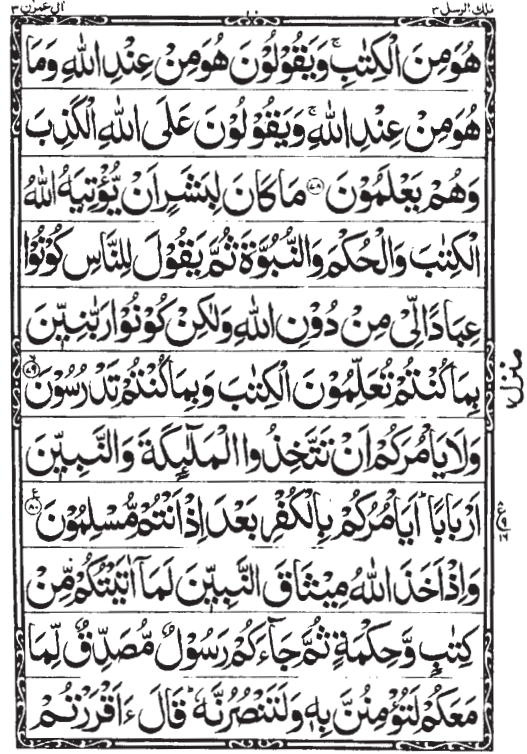 تلك الرسل ٣ ١٠ اٰل عمرٰن ٣
هُوَ مِنَ الْكِتٰبِ ۚ وَيَقُوْلُوْنَ هُوَ مِنْ عِنْدِ اللّٰهِ وَمَا
هُوَ مِنْ عِنْدِ اللّٰهِ ۚ وَيَقُوْلُوْنَ عَلَى اللّٰهِ الْكَذِبَ
وَهُمْ يَعْلَمُوْنَ ﴿٧٨﴾ مَا كَانَ لِبَشَرٍ اَنْ يُّؤْتِيَهُ اللّٰهُ
الْكِتٰبَ وَالْحُكْمَ وَالنُّبُوَّةَ ثُمَّ يَقُوْلَ لِلنَّاسِ كُوْنُوْا
عِبَادًا لِّىْ مِنْ دُوْنِ اللّٰهِ وَلٰكِنْ كُوْنُوْا رَبّٰنِيّٖنَ
بِمَا كُنْتُمْ تُعَلِّمُوْنَ الْكِتٰبَ وَبِمَا كُنْتُمْ تَدْرُسُوْنَ ۙ﴿٧٩﴾
وَلَا يَاْمُرَكُمْ اَنْ تَتَّخِذُوا الْمَلٰٓئِكَةَ وَالنَّبِيّٖنَ
اَرْبَابًا ؕ اَيَاْمُرُكُمْ بِالْكُفْرِ بَعْدَ اِذْ اَنْتُمْ مُّسْلِمُوْنَ ﴿٨٠﴾ ع
وَاِذْ اَخَذَ اللّٰهُ مِيْثَاقَ النَّبِيّٖنَ لَمَاۤ اٰتَيْتُكُمْ مِّنْ
كِتٰبٍ وَّحِكْمَةٍ ثُمَّ جَآءَكُمْ رَسُوْلٌ مُّصَدِّقٌ لِّمَا
مَعَكُمْ لَتُؤْمِنُنَّ بِهٖ وَلَتَنْصُرُنَّهٗ ؕ قَالَ ءَاَقْرَرْتُمْ
منزل